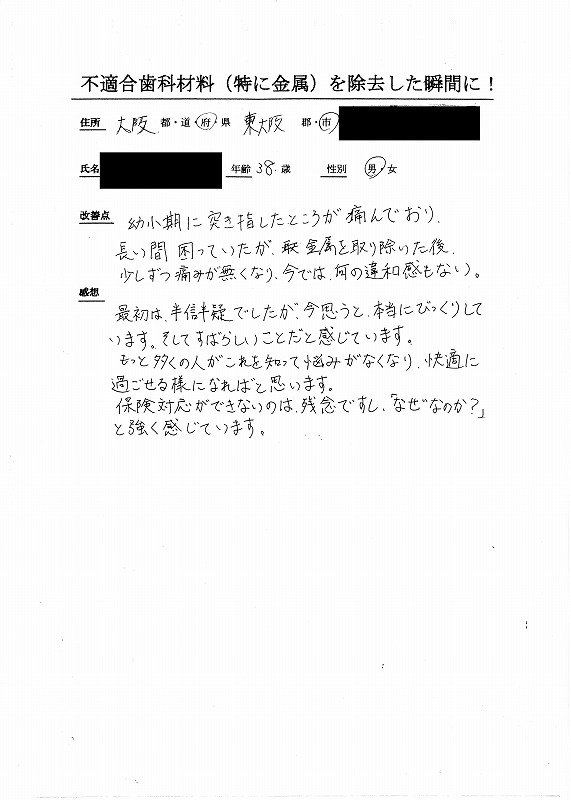 不適合歯科材料（特に金属）を除去した瞬間に！
住所 大阪 都・道・府・県 東大阪 郡・市
氏名 年齢 38 歳 性別 男・女
改善点 幼小期に突き指したところが痛んでおり、
長い間困っていたが、金属を取り除いた後、
少しずつ痛みが無くなり、今では、何の違和感もない。
感想
最初は、半信半疑でしたが、今思うと、本当にびっくりして
います。そしてすばらしいことだと感じています。
もっと多くの人がこれを知って悩みがなくなり、快適に
過ごせる様になればと思います。
保険対応ができないのは、残念ですし、「なぜなのか？」
と強く感じています。